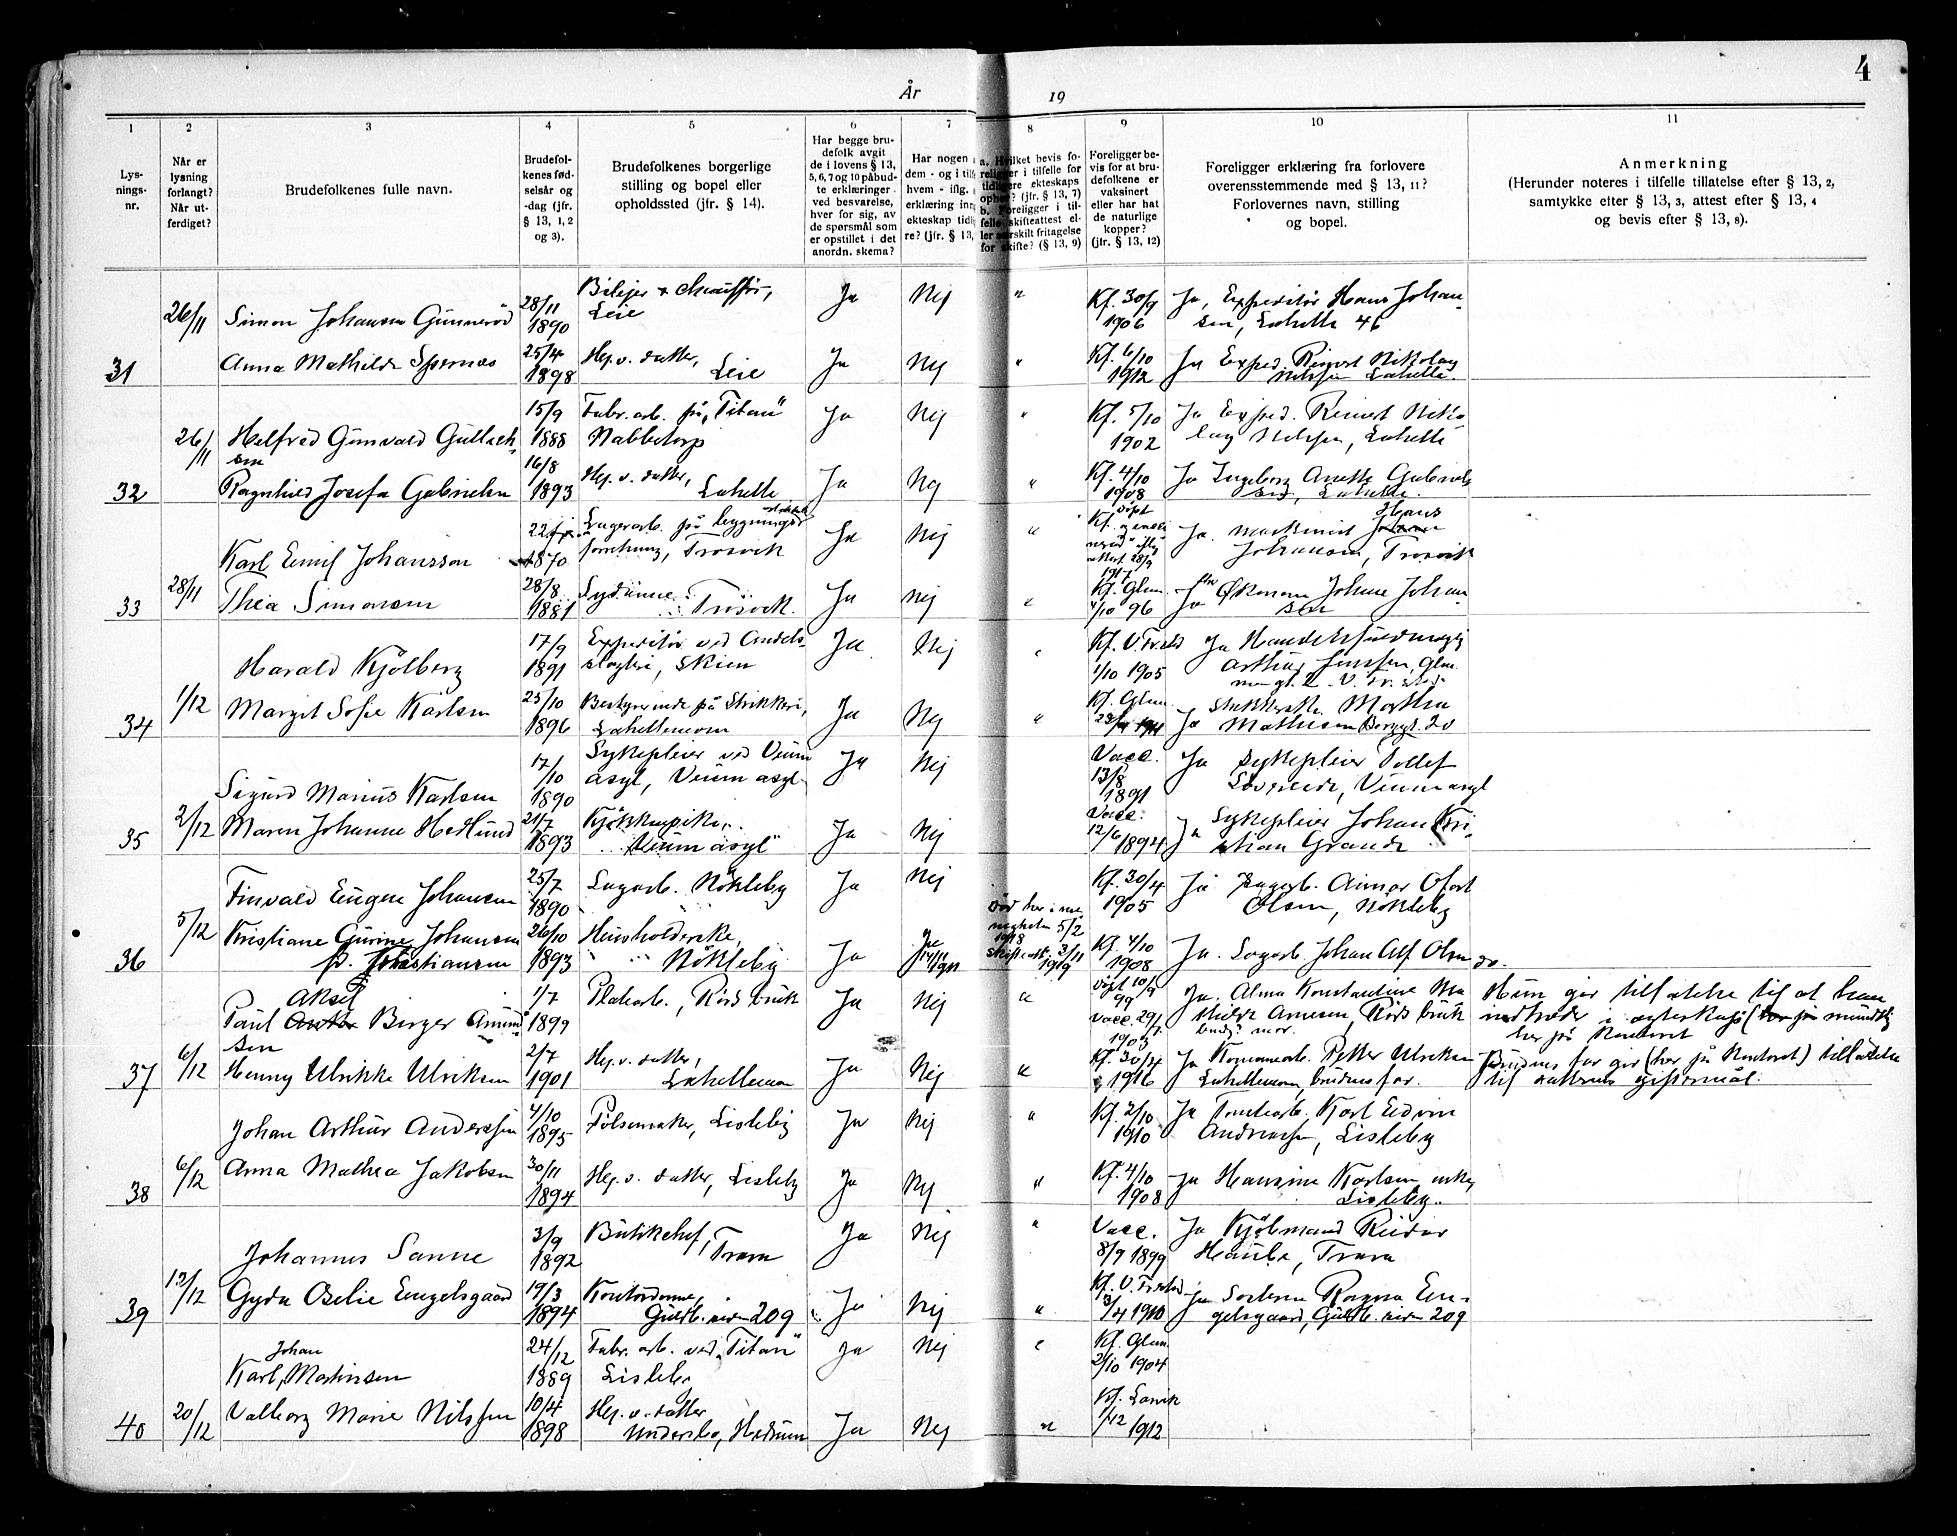 4
År 19
1 2 3 4 5 6 7 8 9 10 11
Lys-
nings-
nr.
Når er
lysning
forlangt?
Når ut-
ferdiget?
Brudefolkenes fulle navn.
Brudefol-
kenes fød-
selsår og
-dag (jfr.
§ 13, 1, 2
og 3).
Brudefolkenes borgerlige
stilling og bopel eller
opholdssted (jfr. § 14).
Har begge bru-
defolk avgit
de i lovens § 13,
5, 6, 7 og 10 påbud-
te erklæringer
ved besvarelse,
hver for sig, av
de spørsmål som
er opstillet i det
anordn. skema?
Har nogen
dem - og i til
hvem - iflg.
erklæring in
ekteskap tidl
re? (jfr. § 13,
a. Hvilket bevis fo-
religger i tilfelle for
tidligere ekteskaps
ophør? (jfr. § 13, 7)
b. Foreligger i til-
felle skifteattest el-
ler særskilt fritagelse
for skifte? (§ 13, 9)
Foreligger be-
vis for at bru-
defolkene er
vaksinert
eller har hat
de naturlige
kopper?
(jfr. § 13, 12)
Foreligger erklæring fra forlovere
overensstemmende med § 13, 11?
Forlovernes navn, stilling
og bopel.
Anmerkning
(Herunder noteres i tilfelle tillatelse efter § 13, 2,
samtykke efter § 13, 3, attest efter § 13, 4
og bevis efter § 13, 8).
26/11 Simon Johansen Gunnerød 28/11 1890 Bileier & chauffør, Leie Ja Nej " Kf. 30/9 1906 Ja, Expeditør Hans Johan-
sen, Lahelle 46
31 Anna Mathilde Spernes 25/4 1898 Hj. v. datter, Leie Ja Nej " Kf. 6/10 1912 Ja Exped. Reinert Nikolay
Nilssen Lahelle.
26/11 Helfred Gunvald Gullick-
sen 15/9 1888 Fabr. arb. på "Titan" Nabbetorp Ja Nej " Kf. 5/10 1902 Ja Exped. Reinert Niko-
lay Nilssen, Lahelle
32 Ragnhild Josefa Gabrielsen 16/8 1893 Hj. v. datter, Lahelle Ja Nej " Kf. 4/10 1908 Ja Ingeborg Anette Gabriels
sen, Lahelle.
Karl Emil Johansson 1870 Lagerarb. på bygnings
forretning, Trosvik Ja Nej " Ja. maskinist Hans
Johansen, Trosvik
33 28/11 Thea Simonsen 28/8 1881 Sydame Trosvik. Ja nej " Kf. Glem. 4/10 96 Ja Økonom Johan Johan
sen
Harald Kjølberg 17/9 1891 Expeditør ved Andels-
slagteri, Skien Ja Nej " Kf. V. Fr.stad 1/10 1905 Ja Handelsfuldmægtig
Arthur Jenssen, Glem.
34 1/12 Margit Sofie Karlsen 25/10 1896 Bestyrerinde på Strikkeri,
Lahellemoen Ja Nej " Kf. Glem. Ja Strikkerske Martha
Mathisen 20
Sigurd Marius Karlsen 17/10 1890 Sykepleier ved Veum
asyl, Veum asyl Ja Nej Vacc. 13/8 1891 Ja Sykepleier Tollef
Veum asyl
35 2/12 Maren Johanne Hedlund 21/7 1893 Kjøkkenpike,
"Veum asyl" Ja Nej Vacc. 12/6 1894 Ja Sykepleier Johan Kri-
stian Grande
Finvald Eugen Johansen 25/7 1890 Lagarb. Nøkleby Ja Nej Kf. 30/4 1905 Ja Lagerb. Aimar Olort
Olsen, Nøkleby
36 5/12 Kristiane Gurine Johansen
f. Kristiansen 26/10 1893 Husholderske,
Nøkleby Ja Død her i me
nigheten 5/2
1918
Skifteatt. 3/11
1919 Kf. 4/10 1908 Ja. Lagarb. Johan Alf Olsen do.
Paul Aksel Birger Amund
sen 1/7 1899 Platearb., Rørs bruk Ja Nej " Døpt 10/9 99
Vacc. 29/7 1903 Ja. Alma Konstantine Ma
thilde Arnesen, Rørs bruk
brudg. mor. Hun gir tillatelse til at han
indtræder i ægteskap (mundtlig
her på Kontoret
37 6/12 Henny Ulrikke Ulriksen 2/7 1901 Hj. v. datter,
Lahellemoen Ja Nej " Kf. 30/4 1916 Ja Petter Ulriksen
Lahellemoen, brudens far. Brudens far gir (her på Kontoret) tillatelse
til datterens giftermål.
Johan Arthur Anderssen 4/10 1895 Pølsemaker, Lisleby Ja Nej " Kf. 2/10 1910 Ja Tomtearb. Karl Edvin
Andreassen, Lisleby
38 6/12 Anna Mathea Jakobsen 30/11 1894 Hj. v. datter, Lisleby Ja Nej " Kf. 4/10 1908 Ja Hansine Karlsen, enke,
Lisleby.
Johannes Sanne 3/9 1892 Butikchef, Tram Ja Nej " Vacc. 8/9 1899 Ja Kjøbmand Reidar
Tram
39 13/12 Gyda Oselie Engelsgaard 19/3 1894 Kontordame,
Guldb. veien 209 Ja Nej " Kf. V. Fr.stad 3/4 1910 Ja Søsteren Ragna En-
gelsgaard, Guldb. veien 209
Karl Johan Martinsen 24/12 1889 Fabr. arb. ved "Titan"
Lisleby Ja Nej " Kf. Glem. 2/10 1904
40 20/12 Valborg Marie Nilssen 10/4 1898 Hj. v. datter
Undersbo, Hedrum Ja Nej " Kf. Larvik 1/12 1912